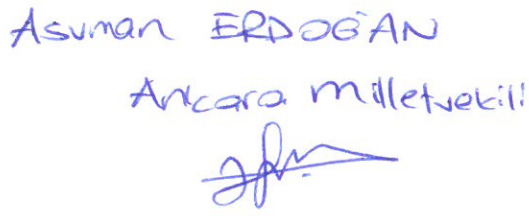 Asuman ERDOĞAN
Ankara Milletvekili